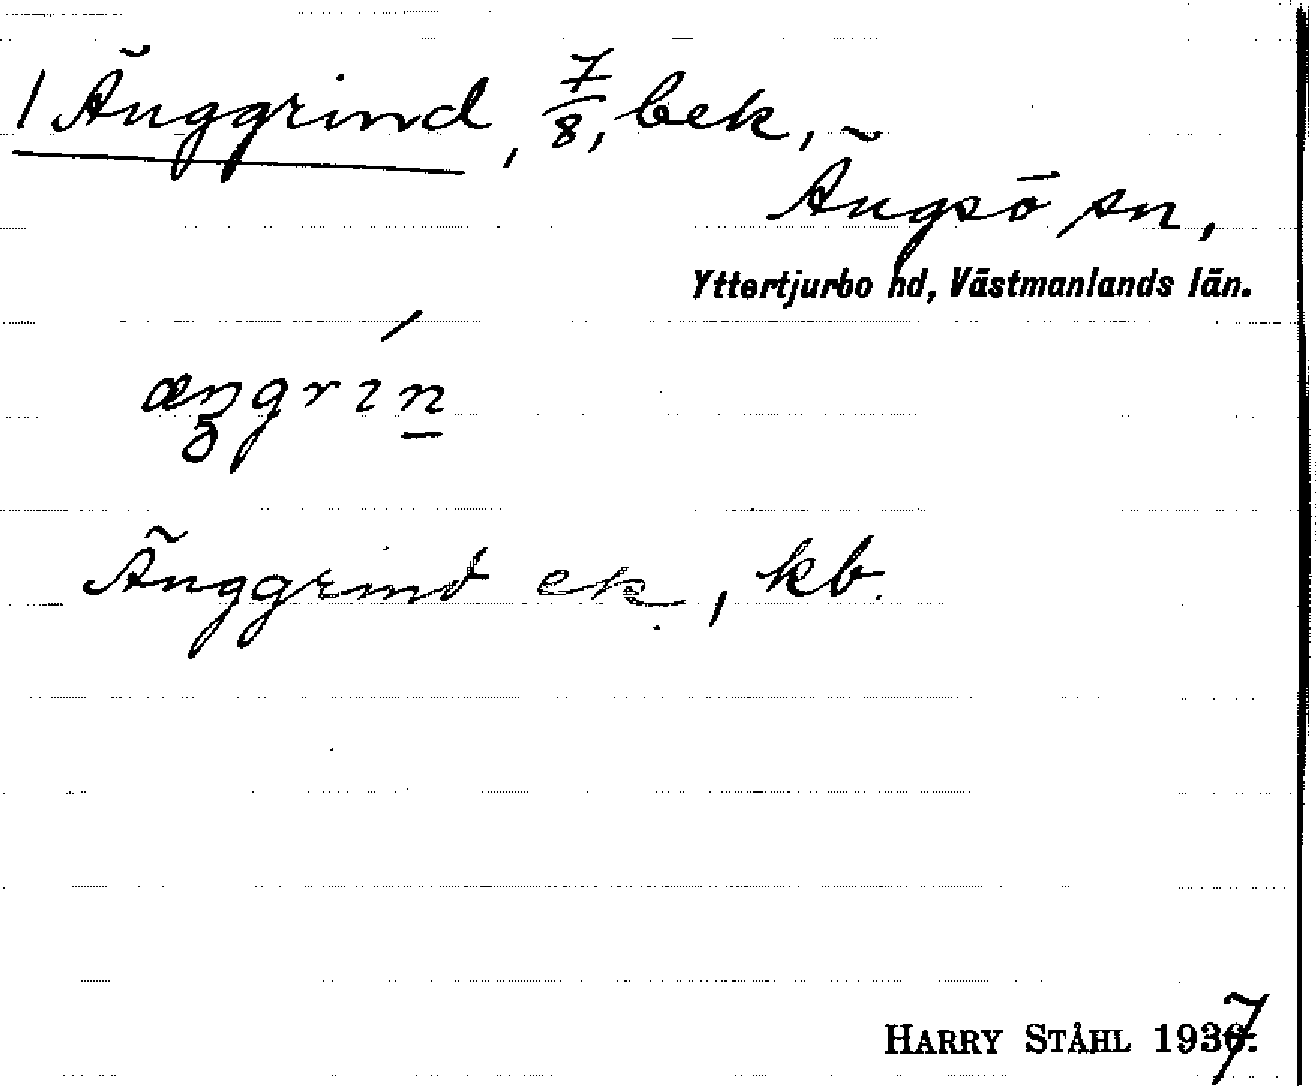 1 Änggrind, 7/8, bek,
Ängsö sn,
Yttertjurbo hd, Västmanlands län.
æŋgrı́n
Änggrind ek, kb.
HARRY STÅHL 1937